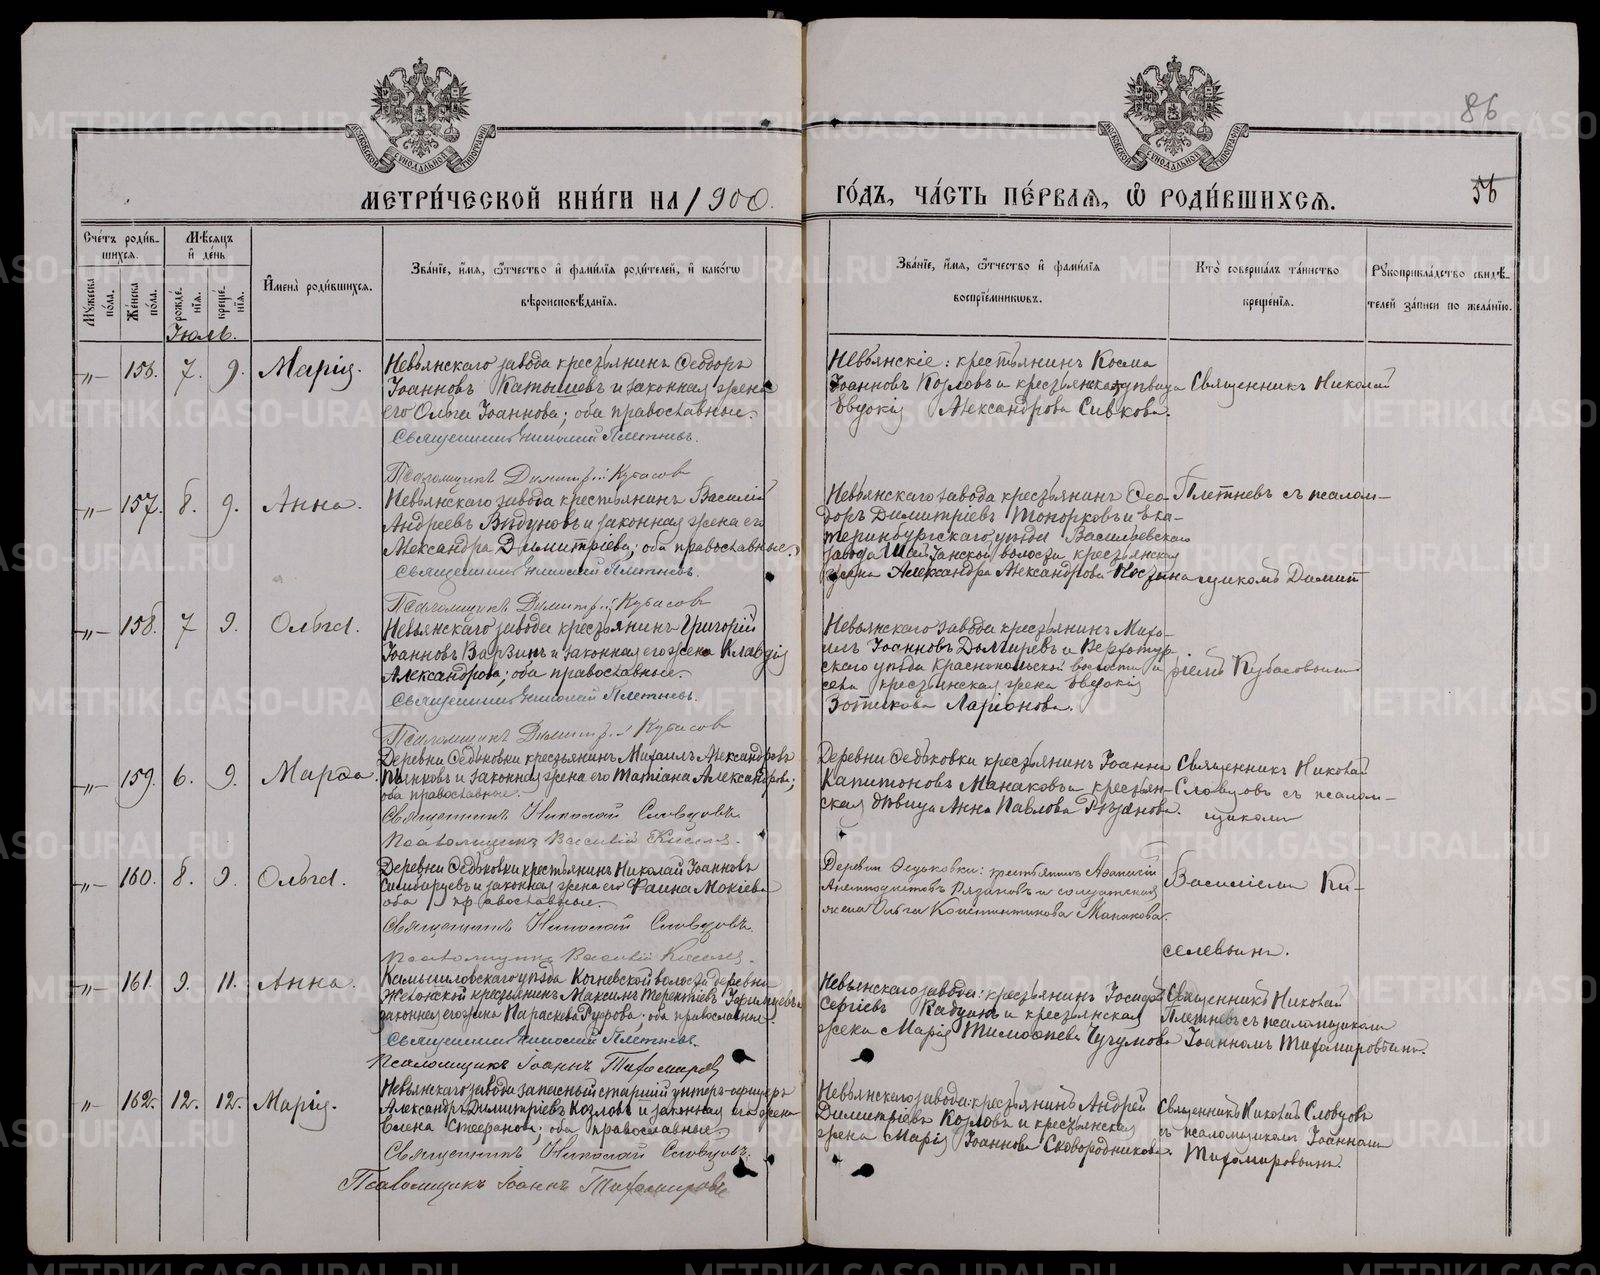 86
56
МОСКОВСКОЙ СѴНОДАЛЬНОЙ ТИПОГРАФІИ
МОСКОВСКОЙ СѴНОДАЛЬНОЙ ТИПОГРАФІИ
МЕТРИ́ЧЕСКОЙ КНИ́ГИ НА 1900.
ГО́ДЪ, ЧА́СТЬ ПЕ́РВАЯ, Ѡ҆ РОДИ́ВШИХСѦ.
Сче́тъ роди́в-
шихся.
Мꙋжеска по́ла.
Же́нска по́ла.
Мѣ́сяцъ
и҆ де́нь
рожде́нїя.
креще́нїя.
И҆мена̀ роди́вшихся.
Зва́нїе, и҆́мя, ѻ҆́тчество и҆ фами́лїя роди́телей, и҆ како́гѡ
вѣроисповѣ́данїя.
Зва́нїе, и҆́мя, ѻ҆́тчество и҆ фами́лїя
воспрїе́мникѡвъ.
Кто̀ соверша́лъ та́инство
креще́нїя.
Рꙋкоприкла́дство свидѣ́-
телей за́писи по жела́нїю.
Іюль.
-„- 156. 7. 9. Марія.
Невьянскаго завода крестьянинъ Ѳеодоръ
Іоанновъ Катышевъ и законная жена
его Ольга Іоаннова; оба православные.
Священникъ Николай Плетневъ.
Псаломщикъ Димитрій Кубасов
Невьянскіе: крестьянинъ Косма
Іоанновъ Козловъ и крестьянская дѣвица
Евдокія Александрова Сивкова.
Священникъ Николай
-„- 157. 8. 9. Анна.
Невьянскаго завода крестьянинъ Василій
Андреевъ и законная жена его
Александра Димитріева; оба православные.
Священникъ Николай Плетневъ.
Псаломщикъ Димитрій Кубасов
Невьянскаго завода крестьянинъ Ѳео-
доръ Димитріевъ Топорковъ и Ека-
теринбургскаго уѣзда Васильевскаго
завода Шайтанской волости крестьянская
жена Александра Александрова
Плетневъ съ псалом-
щикомъ Димит
-„- 158. 7 9. Ольга.
Невьянскаго завода крестьянинъ Григорій
Іоанновъ Варзинъ и законная его жена Клавдія
Александрова; оба православные.
Священникъ Николай Плетневъ.
Псаломщикъ Димитрій Кубасов
Невьянскаго завода крестьянинъ Миха-
илъ Іоанновъ и Верхотур
скаго уѣзда Краснопольской волости и
села крестьянская жена Евдокія
Зотикова Ларіонова.
ріемъ Кубасовымъ
-„- 159. 6. 9. Марѳа.
Деревни Ѳедьковки крестьянинъ Михаилъ Александровъ
Пьянковъ и законная жена его Татіана Александрова;
оба православные.
Священникъ Николай Словцовъ
Псаломщикъ Василій Киселев
Деревни Ѳедьковки крестьянинъ Іоаннъ
Капитоновъ Манаковъ и крестьян-
ская дѣвица Анна Павлова Рязанова.
Священникъ Николай
Словцовъ съ псалом-
щикомъ
-„- 160. 8. 9. Ольга.
Деревни Ѳедьковки крестьянинъ Николай Іоанновъ
и законная жена его Фаина Мокіева
оба православные.
Священникъ Николай Словцовъ.
Псаломщикъ Василій Киселев.
Деревни Ѳедьковки: крестьянинъ Аѳанасій
Рязановъ и солдатская
жена Ольга Константинова Манакова.
Василіемъ Ки-
селевымъ.
-„- 161. 9. 11. Анна.
Камышловскаго уѣзда волости деревни
крестьянинъ Максимъ Терентіевъ и
законная его жена Параскева; оба православные.
Священникъ Николай Плетневъ.
Псаломщикъ Іоаннъ Тихомиров
Невьянскаго завода: крестьянинъ Іосифъ
Сергіевъ и крестьянская
жена Марія Тимоѳеева Чугумова
Священникъ Николай
Плетневъ съ псаломщикомъ
Іоанномъ Тихомировымъ.
-„- 162. 12. 12. Марія.
Невьянскаго завода запасный старшій унтеръ-офицеръ
Александръ Димитріевъ Козловъ и законная его жена
Елена Стефанова; оба православные.
Священникъ Николай Словцовъ.
Псаломщикъ Іоаннъ Тихомировъ
Невьянскаго завода: крестьянинъ Андрей
Димитріевъ Козловъ и крестьянская
жена Марія Іоаннова Сковородникова.
Священникъ Николай Словцовъ
съ псаломщикомъ Іоанномъ
Тихомировымъ.
METRIKI.GASO-URAL.RU